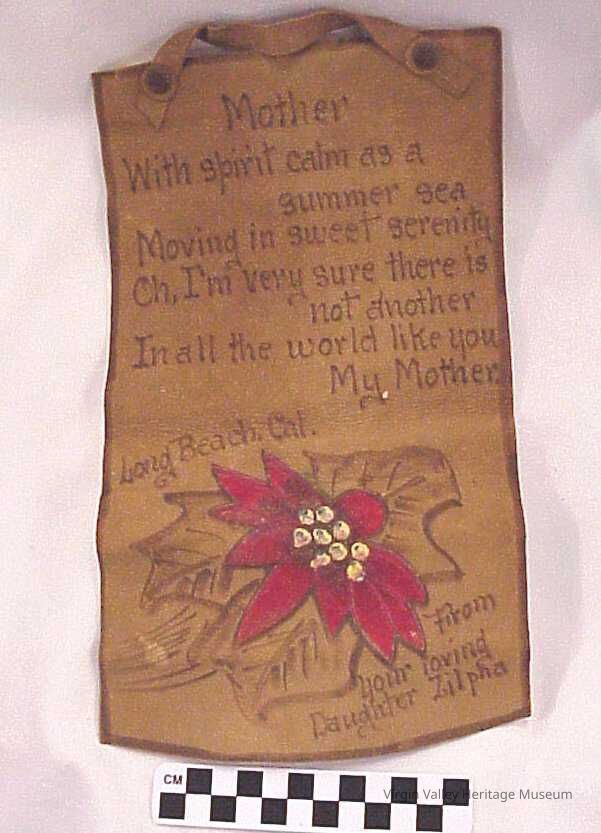 Mother
With spirit calm as a
summer sea
Moving in sweet serenity
Oh, I'm very sure there is
not another
In all the world like you
My Mother.
Long Beach, Cal.
From
your loving
Daughter Zilpha
CM
Virgin Valley Heritage Museum